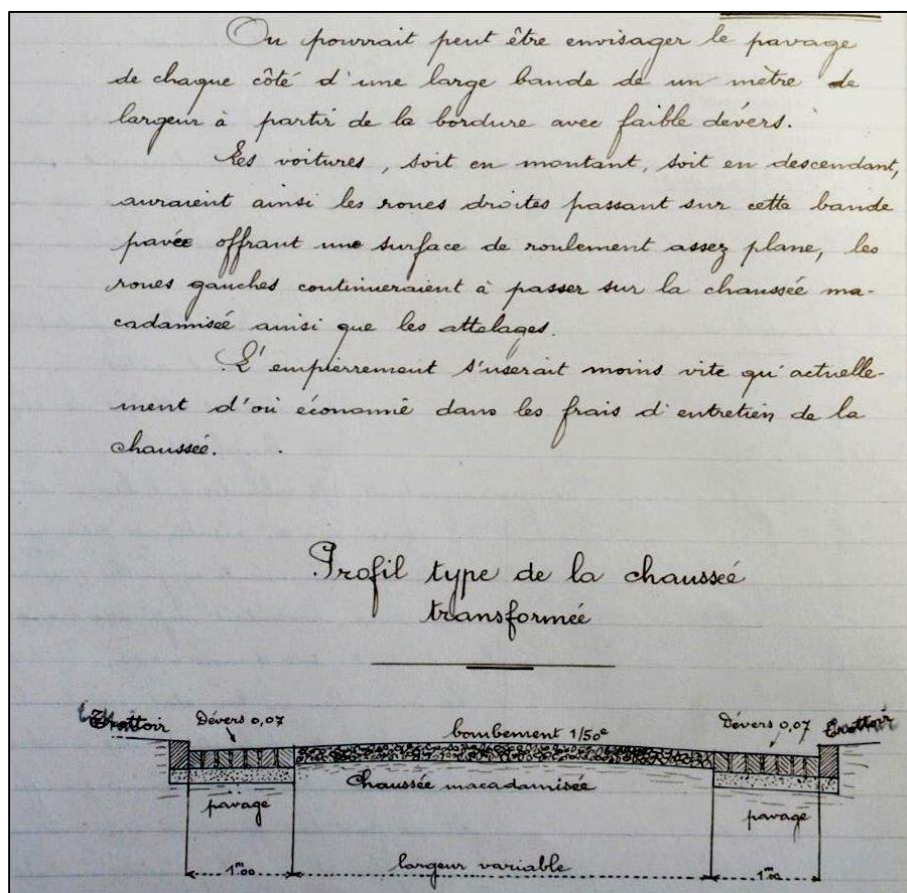 On pourrait peut être envisager le pavage
de chaque côté d'une large bande de un mètre de
largeur à partir de la bordure avec faible dévers.
Les voitures, soit en montant, soit en descendant,
auraient ainsi les roues droites passant sur cette bande
pavée offrant une surface de roulement assez plane, les
roues gauches continueraient à passer sur la chaussée ma-
cadamisée ainsi que les attelages.
L'empierrement s'userait moins vite qu'actuelle-
ment d'où économie dans les frais d'entretien de la
chaussée.
Profil type de la chaussée
transformée
Trottoir Dévers 0,07 bombement 1/50e Dévers 0,07 Trottoir
Chaussée macadamisée
pavage pavage
1m00 largeur variable 1m00